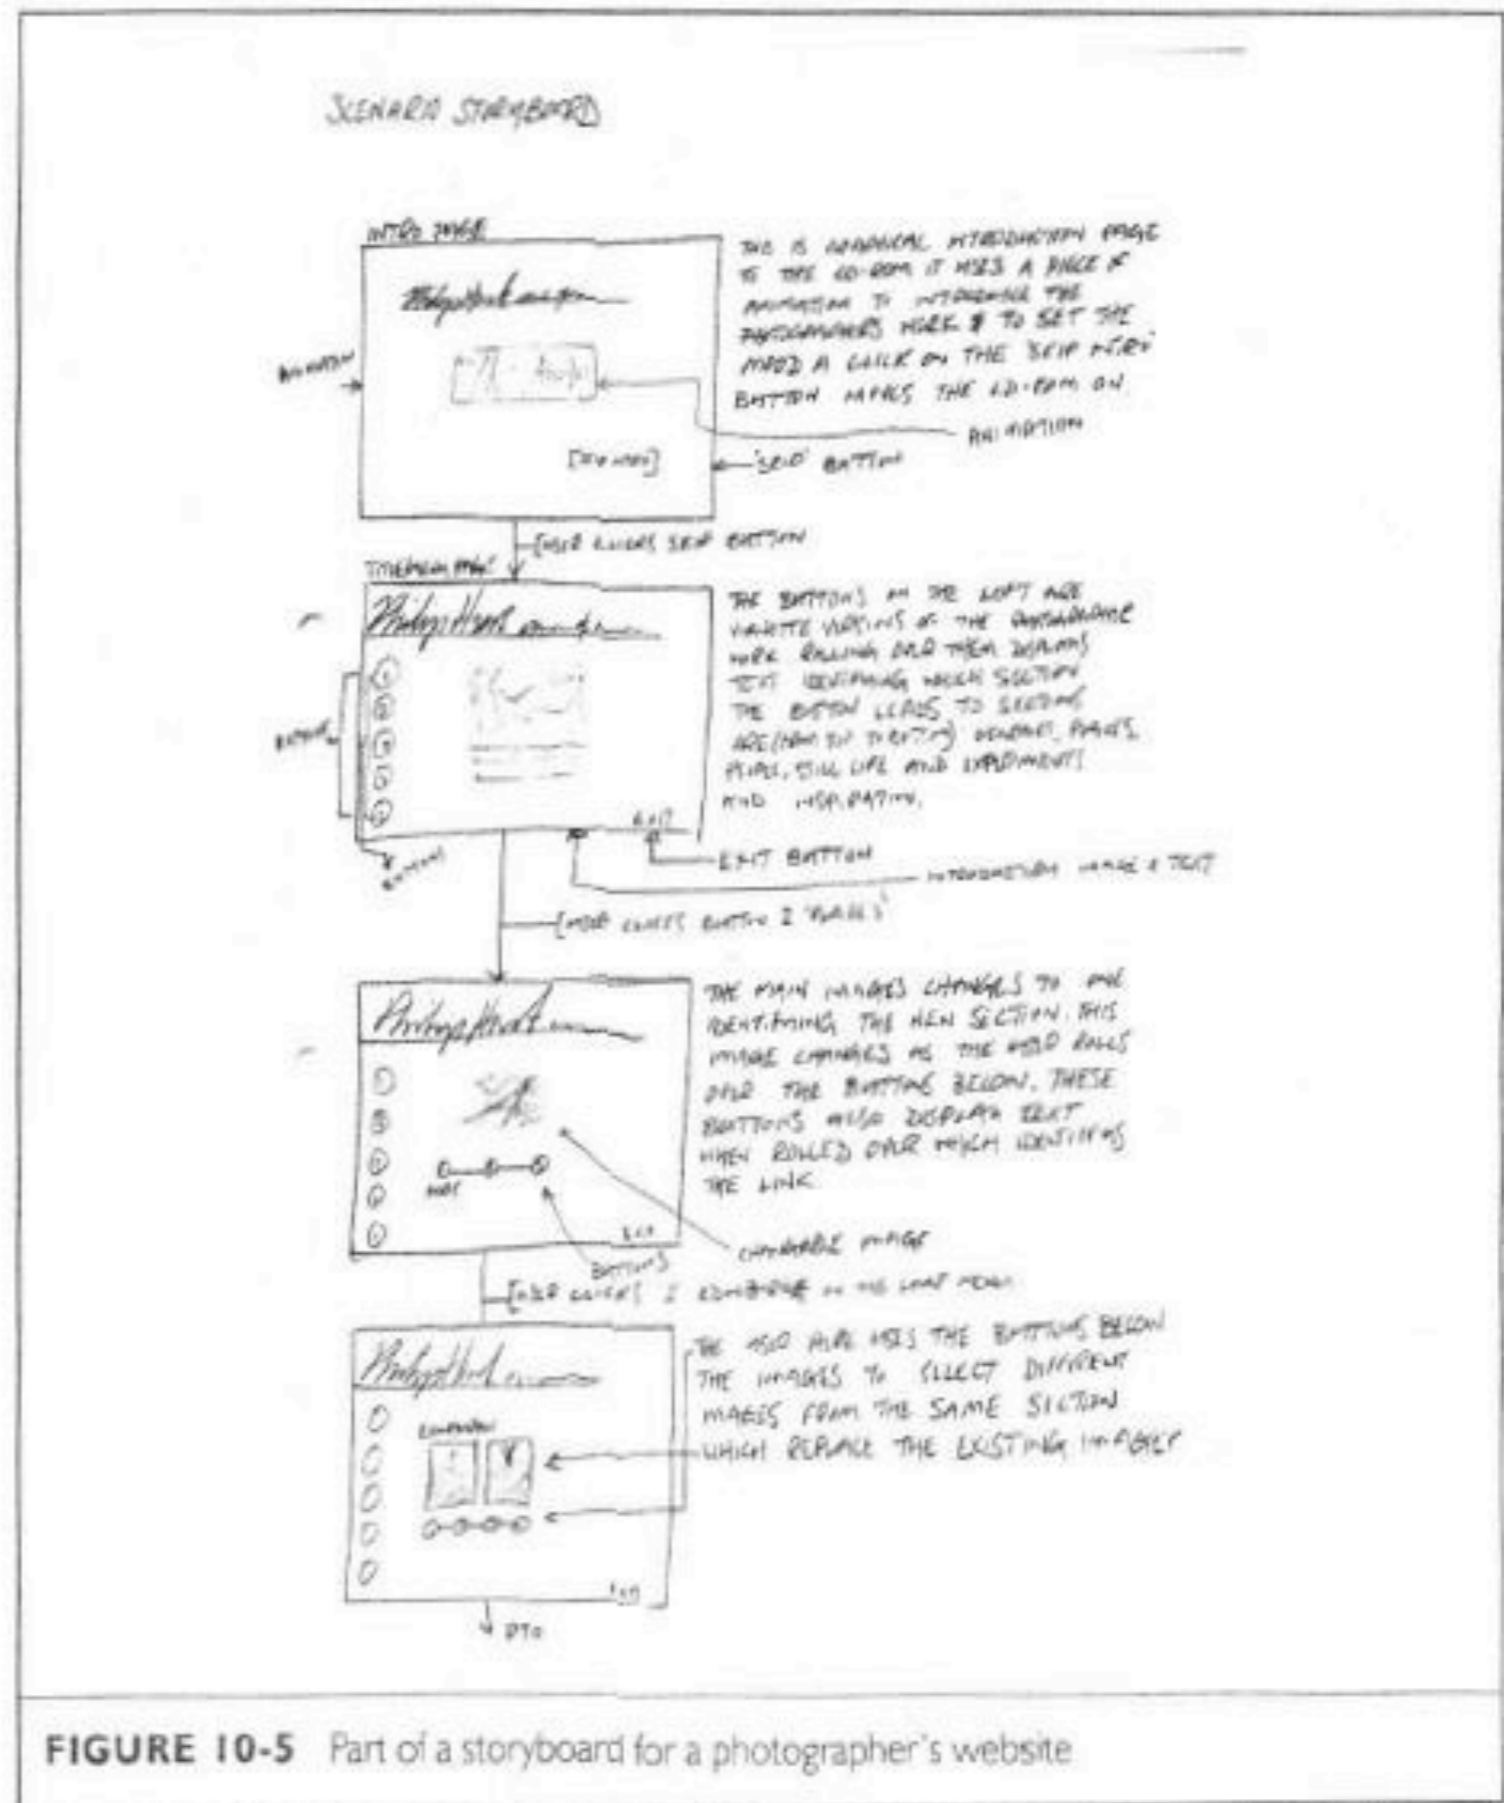 SCENARIO STORYBOARD
INTRO PAGE
THIS IS GRAPHICAL INTRODUCTION PAGE
TO THE CD-ROM IT USES A PIECE OF
ANIMATION TO INTRODUCE THE
PHOTOGRAPHERS WORK & TO SET THE
MOOD A CLICK ON THE 'SKIP INTRO'
BUTTON MOVES THE CD-ROM ON.
ANIMATION
[SKIP INTRO]
'SKIP' BUTTON
[USER CLICKS SKIP BUTTON
PAGE
Philip Hurst
THE BUTTONS ON THE LEFT ARE
VERSIONS OF THE
WORK ROLLING OVER THEM DISPLAYS
TEXT IDENTIFYING WHICH SECTION
THE BUTTON LEADS TO SECTIONS
ARE (FROM TOP TO BOTTOM) PLACES,
PEOPLE, STILL LIFE AND EXPERIMENTS
AND INSPIRATION.
BUTTONS
EXIT
BUTTONS
EXIT BUTTON
INTRODUCTION IMAGE & TEXT
[USER CLICKS BUTTON 2 'PLACES'
Philip Hurst
THE MAIN IMAGES CHANGES TO ONE
IDENTIFYING THE NEW SECTION. THIS
IMAGE CHANGES AS THE USER ROLLS
OVER THE BUTTONS BELOW. THESE
BUTTONS ALSO DISPLAY TEXT
WHEN ROLLED OVER WHICH IDENTIFIES
THE LINK
EXIT
CHANGABLE IMAGE
BUTTONS
[USER CLICKS
Philip Hurst
THE USER HERE USES THE BUTTONS BELOW
THE IMAGES TO SELECT DIFFERENT
IMAGES FROM THE SAME SECTION
WHICH REPLACE THE EXISTING IMAGES
EXIT
PTO
FIGURE 10-5 Part of a storyboard for a photographer's website